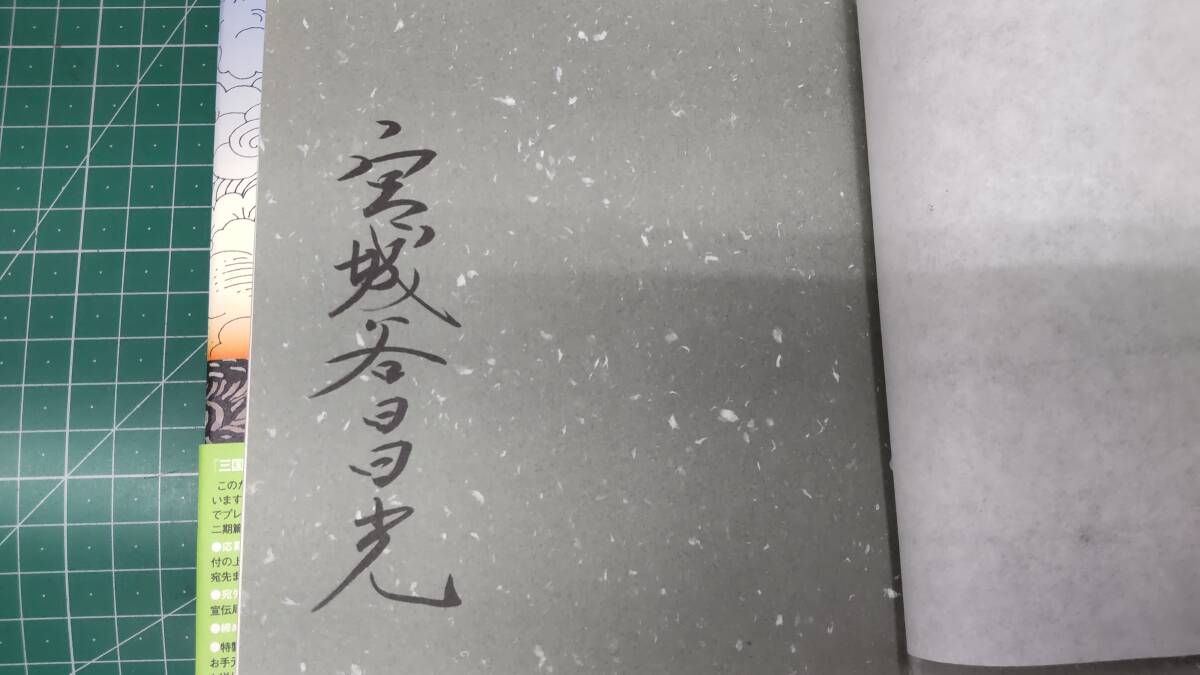 宮城谷昌光
『三国
このた
います
でプレ
二期篇
●応募
付の上
宛先ま
●宛先
宣伝局
●締め
●特製
お手元